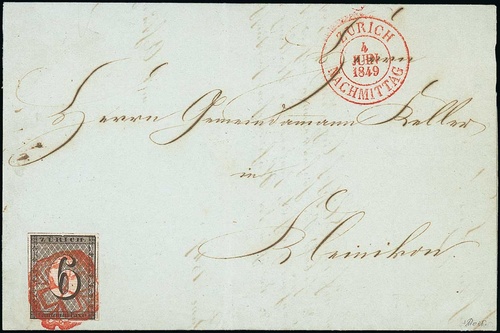 ZÜRICH
4
JUNI
1849
NACHMITTAG
Herrn
Herrn Gemeindamann Keller
in
Kleinikon.
ZURICH
6